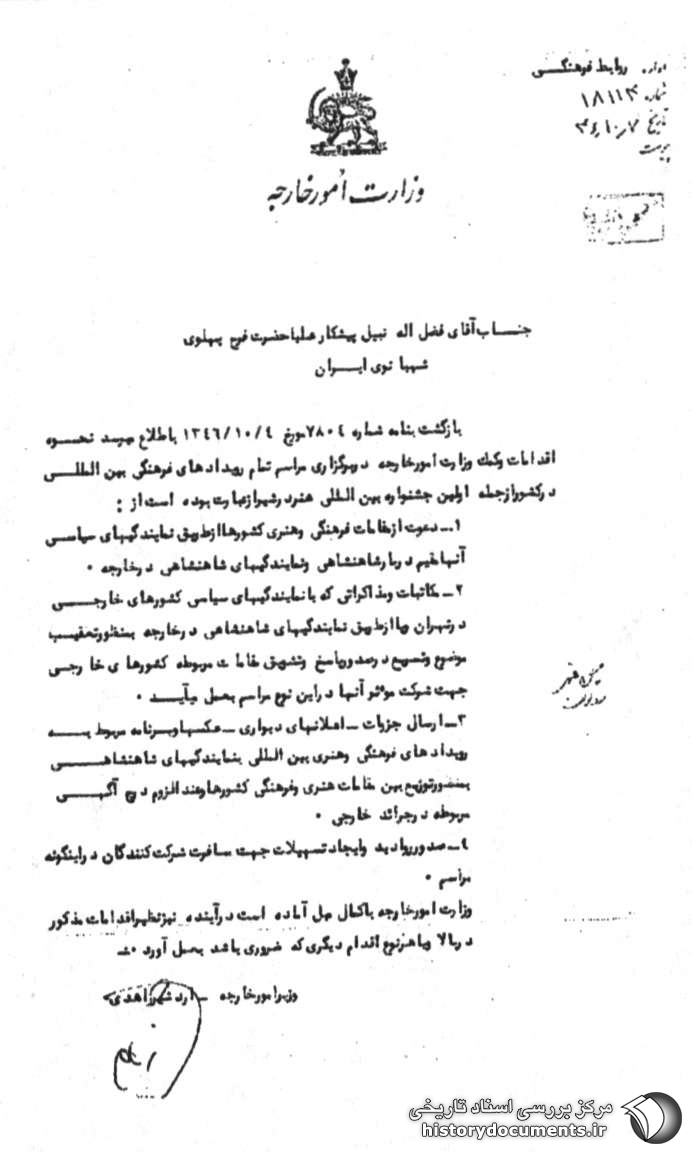 اداره روابط فرهنگی
شماره ۱۸۱۱۳
تاریخ ۴۶/۱۰/۷
پیوست
وزارت اُمور خارجه
جناب آقای فضل اله نبیل پیشکار علیاحضرت فرح پهلوی
شهبانوی ایران
بازگشت بنامه شماره ۷۸۰۴ مورخ ۱۳۴۶/۱۰/۴ باطلاع میرسد نحوه
اقدامات وکمك وزارت امورخارجه دربرگزاری مراسم تمام رویدادهای فرهنگی بین المللی
درکشورازجمله اولین جشنواره بین المللی هنردرشیرازعبارت بوده است از :
۱ـ دعوت ازمقامات فرهنگی وهنری کشورهاازطریق نمایندگیهای سیاسی
آنهامقیم دربارشاهنشاهی ونمایندگیهای شاهنشاهی درخارجه ۰
۲ـ مکاتبات ومذاکراتی که بانمایندگیهای سیاسی کشورهای خارجی
درتهران ویاازطریق نمایندگیهای شاهنشاهی درخارجه بمنظورتعقیب
موضوع وتسریع درصدورپاسخ وتشویق مقامات مربوطه کشورهای خارجی
جهت شرکت موثر آنها دراین نوع مراسم بعمل میآید ۰
۳ـ ارسال جزوات ـ اعلانهای دیواری ـ عکسهاوبرنامه مربوط به
رویدادهای فرهنگی وهنری بین المللی بنمایندگیهای شاهنشاهی
بمنظورتوزیع بین مقامات هنری وفرهنگی کشورهاوعنداللزوم درج آگهی
مربوطه درجرائد خارجی ۰
۴ـ صدورروادید وایجاد تسهیلات جهت مسافرت شرکت کنندگان دراینگونه
مراسم ۰
وزارت امورخارجه باکمال میل آماده است درآینده نیزنظیراقدامات مذکور
دربالا ویاهرنوع اقدام دیگری که ضروری باشد بعمل آورد ۰
وزیرامورخارجه ـ اردشیرزاهدی
مرکز بررسی اسناد تاریخی
historydocuments.ir